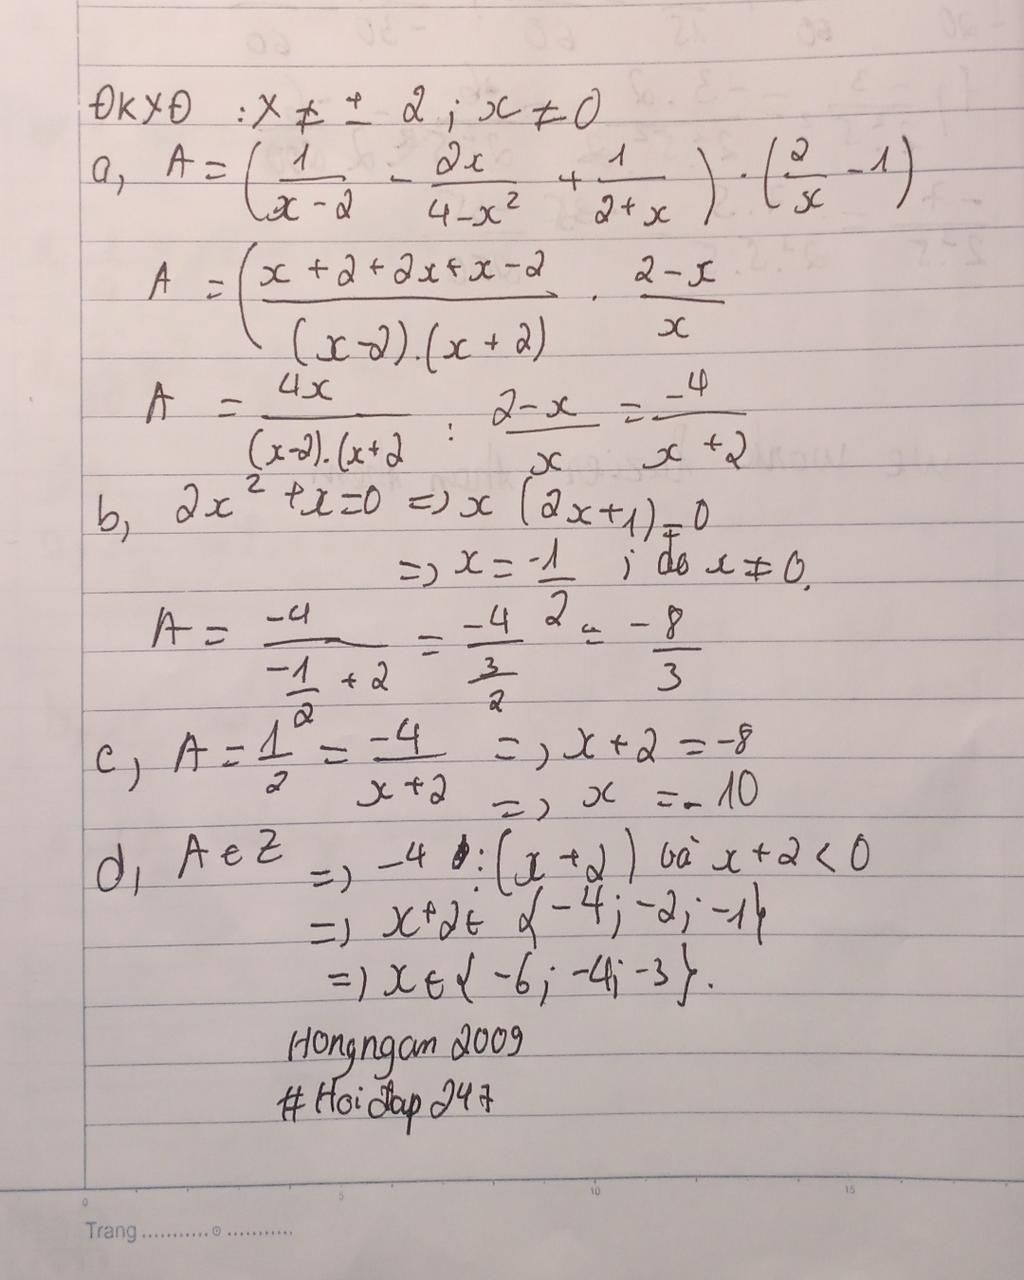 ĐKXĐ : x ≠ ± 2 ; x ≠ 0
a, A = (1/(x-2) - 2x/(4-x²) + 1/(2+x)) . (2/x - 1)
A = ((x+2+2x+x-2)/((x-2).(x+2)) . (2-x)/x
A = 4x/((x-2).(x+2) : (2-x)/x = -4/(x+2)
b, 2x² + x = 0 => x (2x+1) = 0
=> x = -1/2 ; do x ≠ 0.
A = -4/(-1/2 + 2) = -4/(3/2) = -8/3
c, A = 1/2 = -4/(x+2) => x + 2 = -8
=> x = -10
d, A ∈ Z => -4 ⋮ (x+2) và x+2 < 0
=> x+2 ∈ {-4; -2; -1}
=> x ∈ {-6; -4; -3}.
Hongngam 2009
# Hoi đap 247
0 5 10 15
Trang ...........⊙ ...........